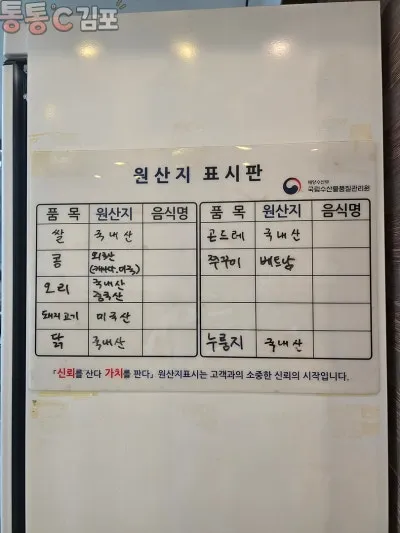 통통℃김포
원산지 표시판
해양수산부
국립수산물품질관리원
품 목 원산지 음식명 품 목 원산지 음식명
쌀 국내산 곤드레 국내산
콩 외국산 (캐나다,미국) 쭈꾸미 베트남
오리 국내산 중국산
돼지고기 미국산
닭 국내산 누룽지 국내산
「신뢰를 산다 가치를 판다」 원산지표시는 고객과의 소중한 신뢰의 시작입니다.